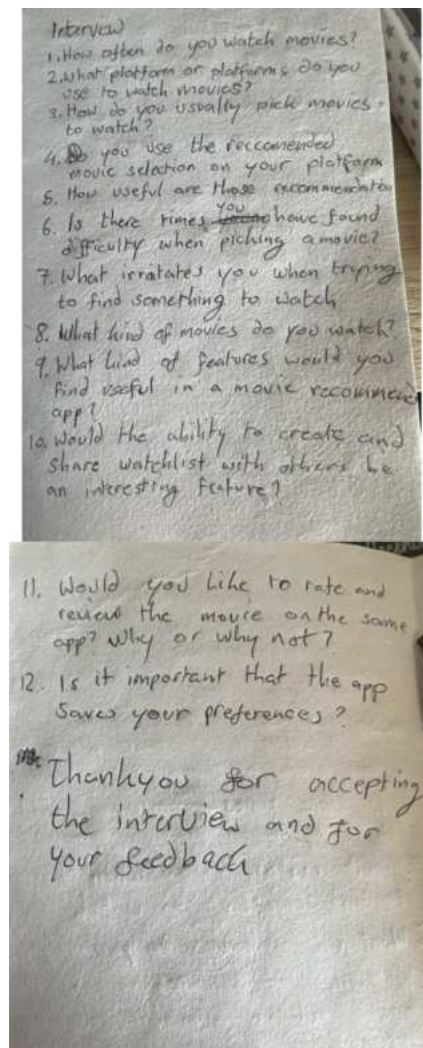 Interview
1. How often do you watch movies?
2. What platform or platforms do you
use to watch movies?
3. How do you usually pick movies
to watch?
4. Do you use the reccomended
movie selection on your platform
5. How useful are those recommendation
6. Is there times you have found
difficulty when picking a movie?
7. What irratates you when trying
to find something to watch
8. What kind of movies do you watch?
9. What kind of features would you
find useful in a movie recommend
app?
10. Would the ability to create and
share watchlist with others be
an interesting feature?
11. Would you like to rate and
review the movie on the same
app? Why or why not?
12. Is it important that the app
saves your preferences?
Thankyou for accepting
the interview and for
your feedback